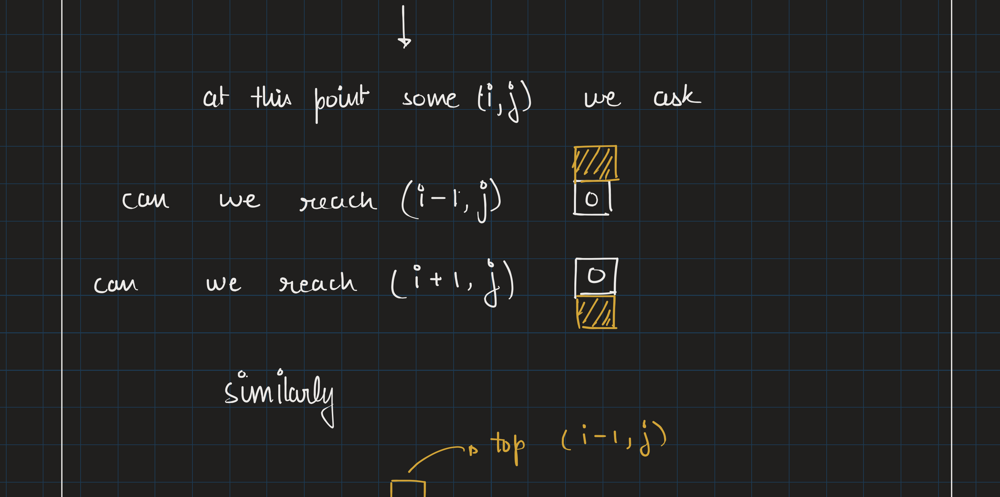 at this point some (i,j) we ask
can we reach (i-1, j)
0
can we reach (i+1, j)
0
similarly
top (i-1, j)